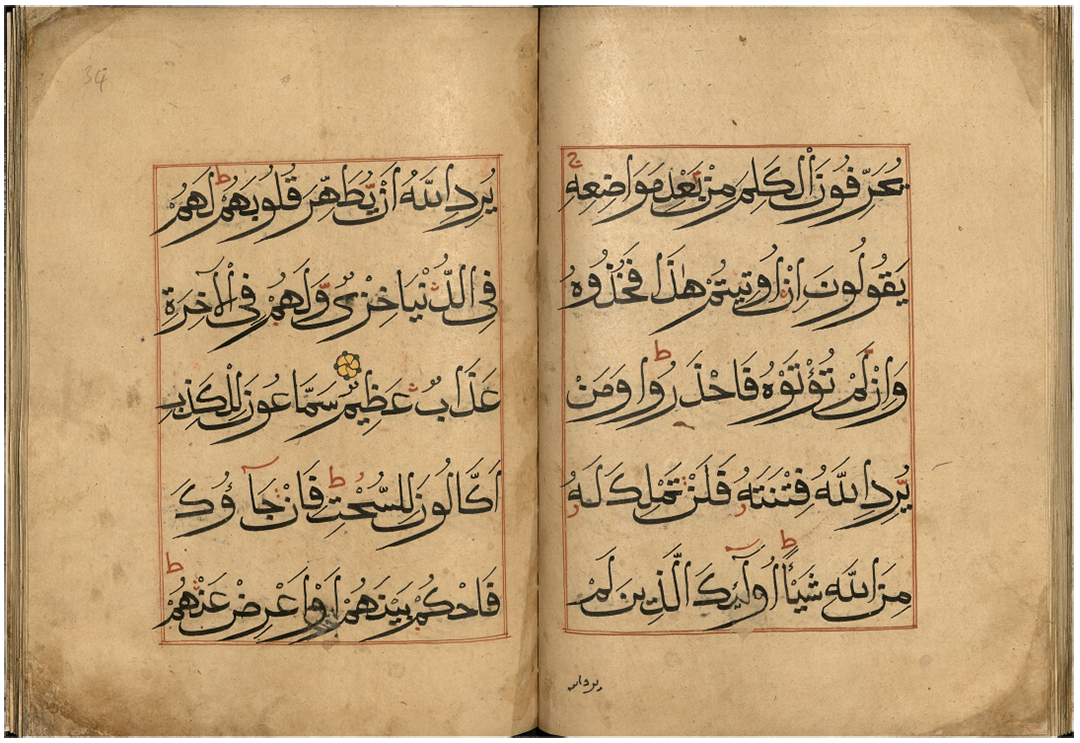 يُحَرِّفُونَ الْكَلِمَ مِنْ بَعْدِ مَوَاضِعِهِ ج
يَقُولُونَ اِنْ اُوتِيتُمْ هٰذَا فَخُذُوهُ
وَاِنْ لَمْ تُؤْتَوْهُ فَاحْذَرُوا ط وَمَنْ
يُرِدِ اللّٰهُ فِتْنَتَهُ فَلَنْ تَمْلِكَ لَهُ
مِنَ اللّٰهِ شَيْـًٔا ط اُولٰٓئِكَ الَّذِينَ لَمْ
يرد الله
34
يُرِدِ اللّٰهُ اَنْ يُّطَهِّرَ قُلُوبَهُمْ ط لَهُمْ
فِى الدُّنْيَا خِزْىٌ وَّلَهُمْ فِى الْاٰخِرَةِ
عَذَابٌ عَظِيمٌ سَمَّاعُونَ لِلْكَذِبِ
اَكَّالُونَ لِلسُّحْتِ ط فَاِنْ جَآؤُكَ
فَاحْكُمْ بَيْنَهُمْ اَوْ اَعْرِضْ عَنْهُمْ ط